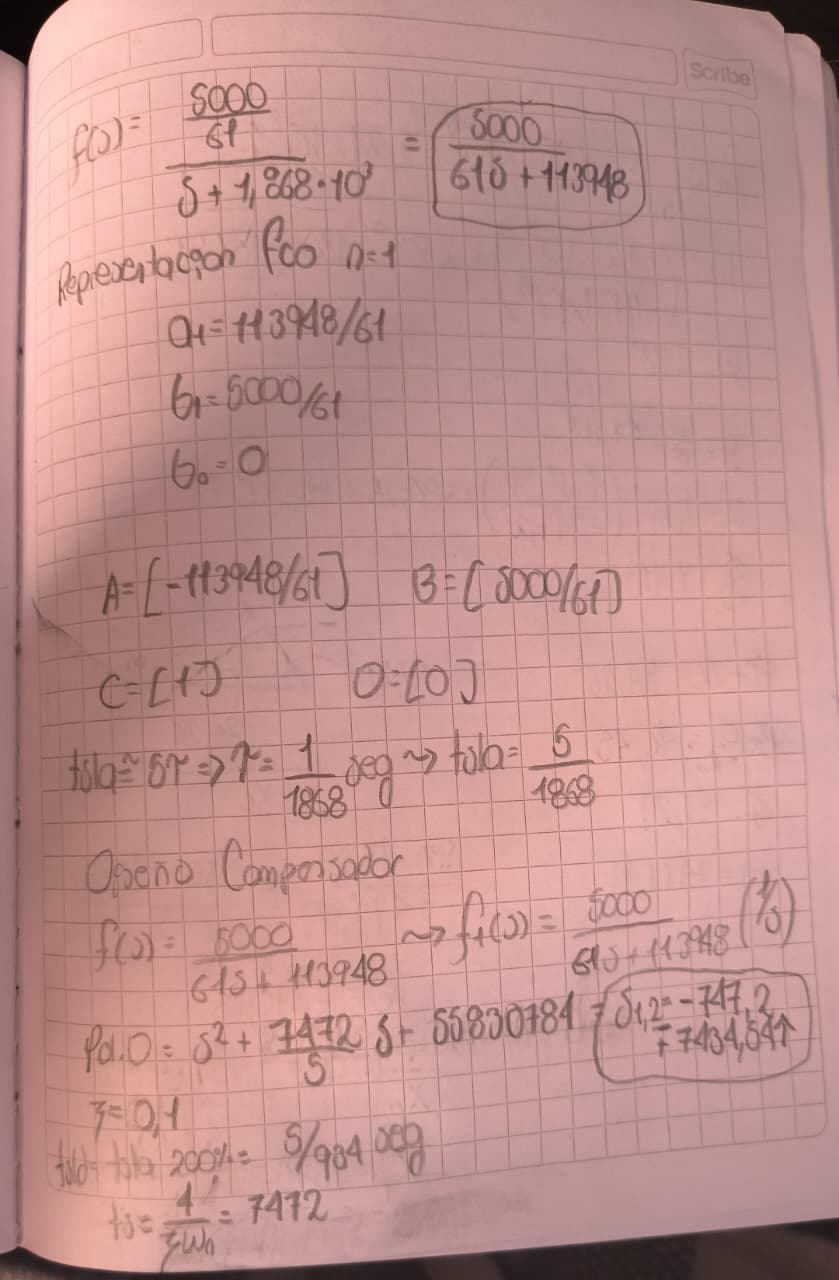 Scribe
f(s) = (5000/61)/(s + 1,868·10³) = 5000/(61s + 113948)
Representación fco n=1
a₁ = 113948/61
b₁ = 5000/61
b₀ = 0
A = [-113948/61] B = [5000/61]
C = [1] D = [0]
tsla ≅ 5τ => τ = 1/1868 seg ⤳ tsla = 5/1868
Diseño Compensador
f(s) = 5000/(61s + 113948) ⤳ f₁(s) = 5000/(61s + 113948) (1/s)
Pd.O = s² + 7472/5 s + 55830784 = s₁,₂ = -747,2
∓ 7434,541
ʒ = 0,1
tsld = tsla 200% = 5/934 seg
ts = 4/ʒωn = 7472